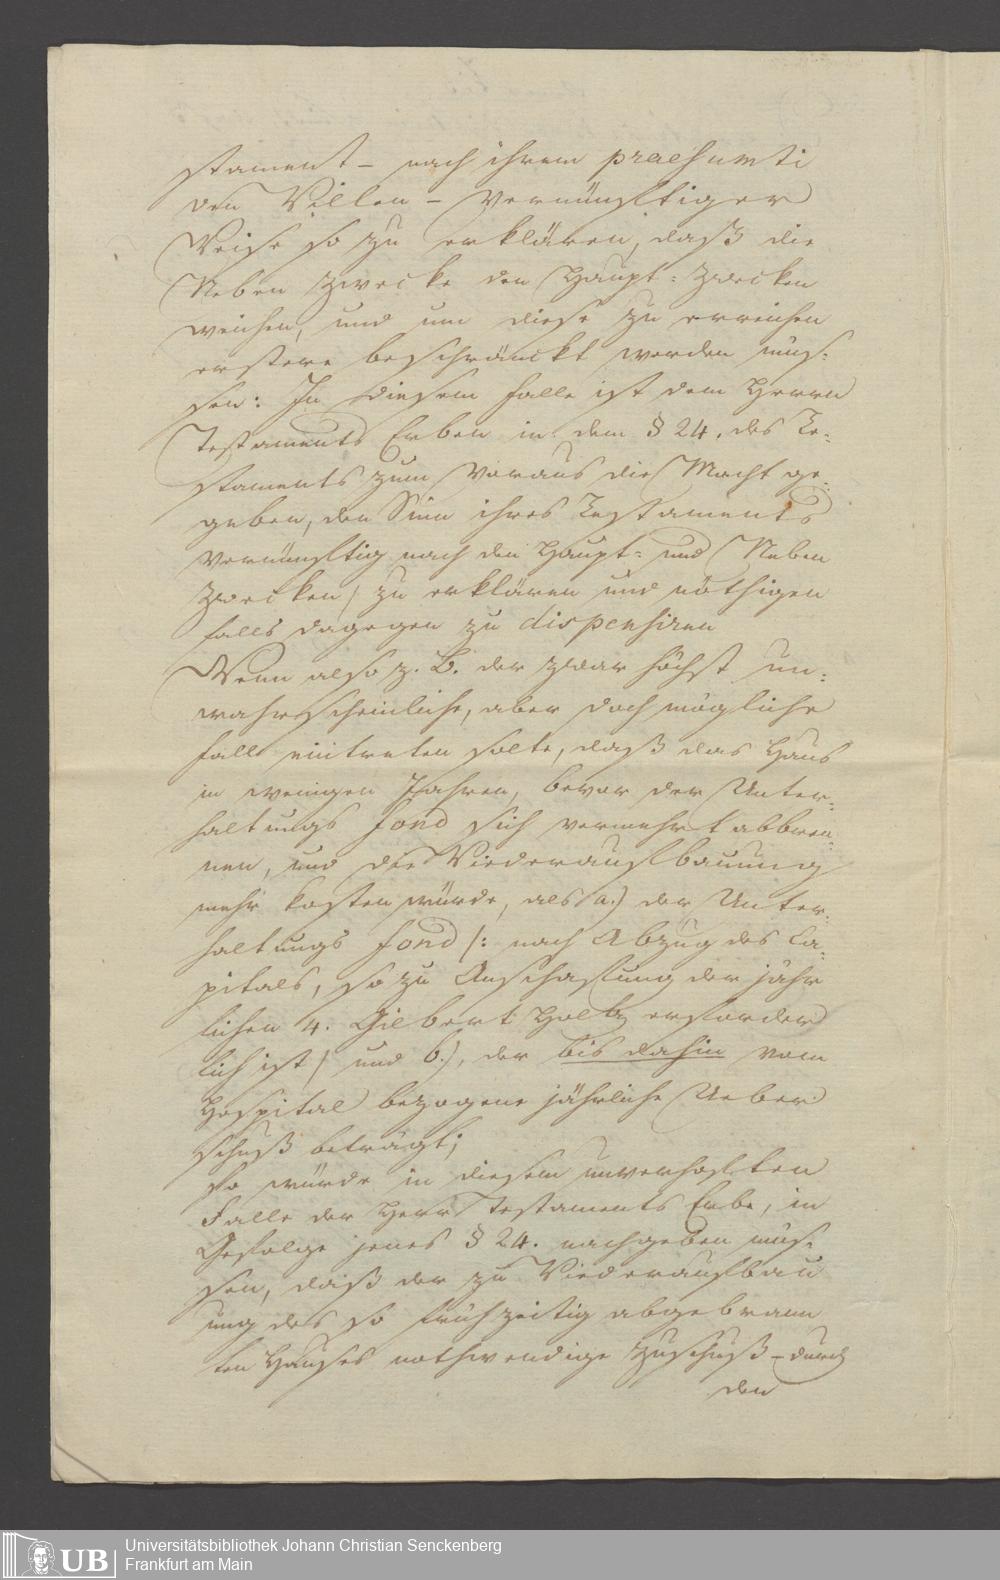 stament – nach ihrem praesumti
ven Willen – vernünftiger
Weise so zu erklären, daß die
Neben Zwecke den Haupt=Zwecken
weichen, und um diese zu erreichen
erstere beschränckt werden müs=
sen: In diesem Falle ist dem Herrn
Testaments Erben in dem § 24. des Te=
staments zum Voraus die Macht ge=
geben, den Sinn ihres Testaments
vernünftig nach den Haupt= und Neben
Zwecken, zu erklären und nöthigen
falls dagegen zu dispensiren
Wenn also z. B. der zwar höchst un=
wahrscheinliche, aber doch mögliche
Fall eintreten solte, daß das Haus
in wenigen Jahren, bevor der Unter=
haltungs fond sich vermehrt abbren=
nen, und die Wiederaufbauung
mehr kosten würde, als a.) der Unter=
haltungs fond /: nach Abzug des Ca=
pitals, so zu Anschaffung der jähr
lichen 4. Gilbert Holtz erforder
lich ist / und b.), der bis dahin vom
Hospital bezogene jährliche Ueber
schuß beträgt;
so würde in diesem unverhofften
Falle der Herr Testaments Erbe, in
Gefolge jenes § 24. nachgeben müs=
sen, daß der zu Wiederaufbau
ung des so frühzeitig abgebrann
ten Hauses nothwendige Zuschuß – durch
den
UB
Universitätsbibliothek Johann Christian Senckenberg
Frankfurt am Main